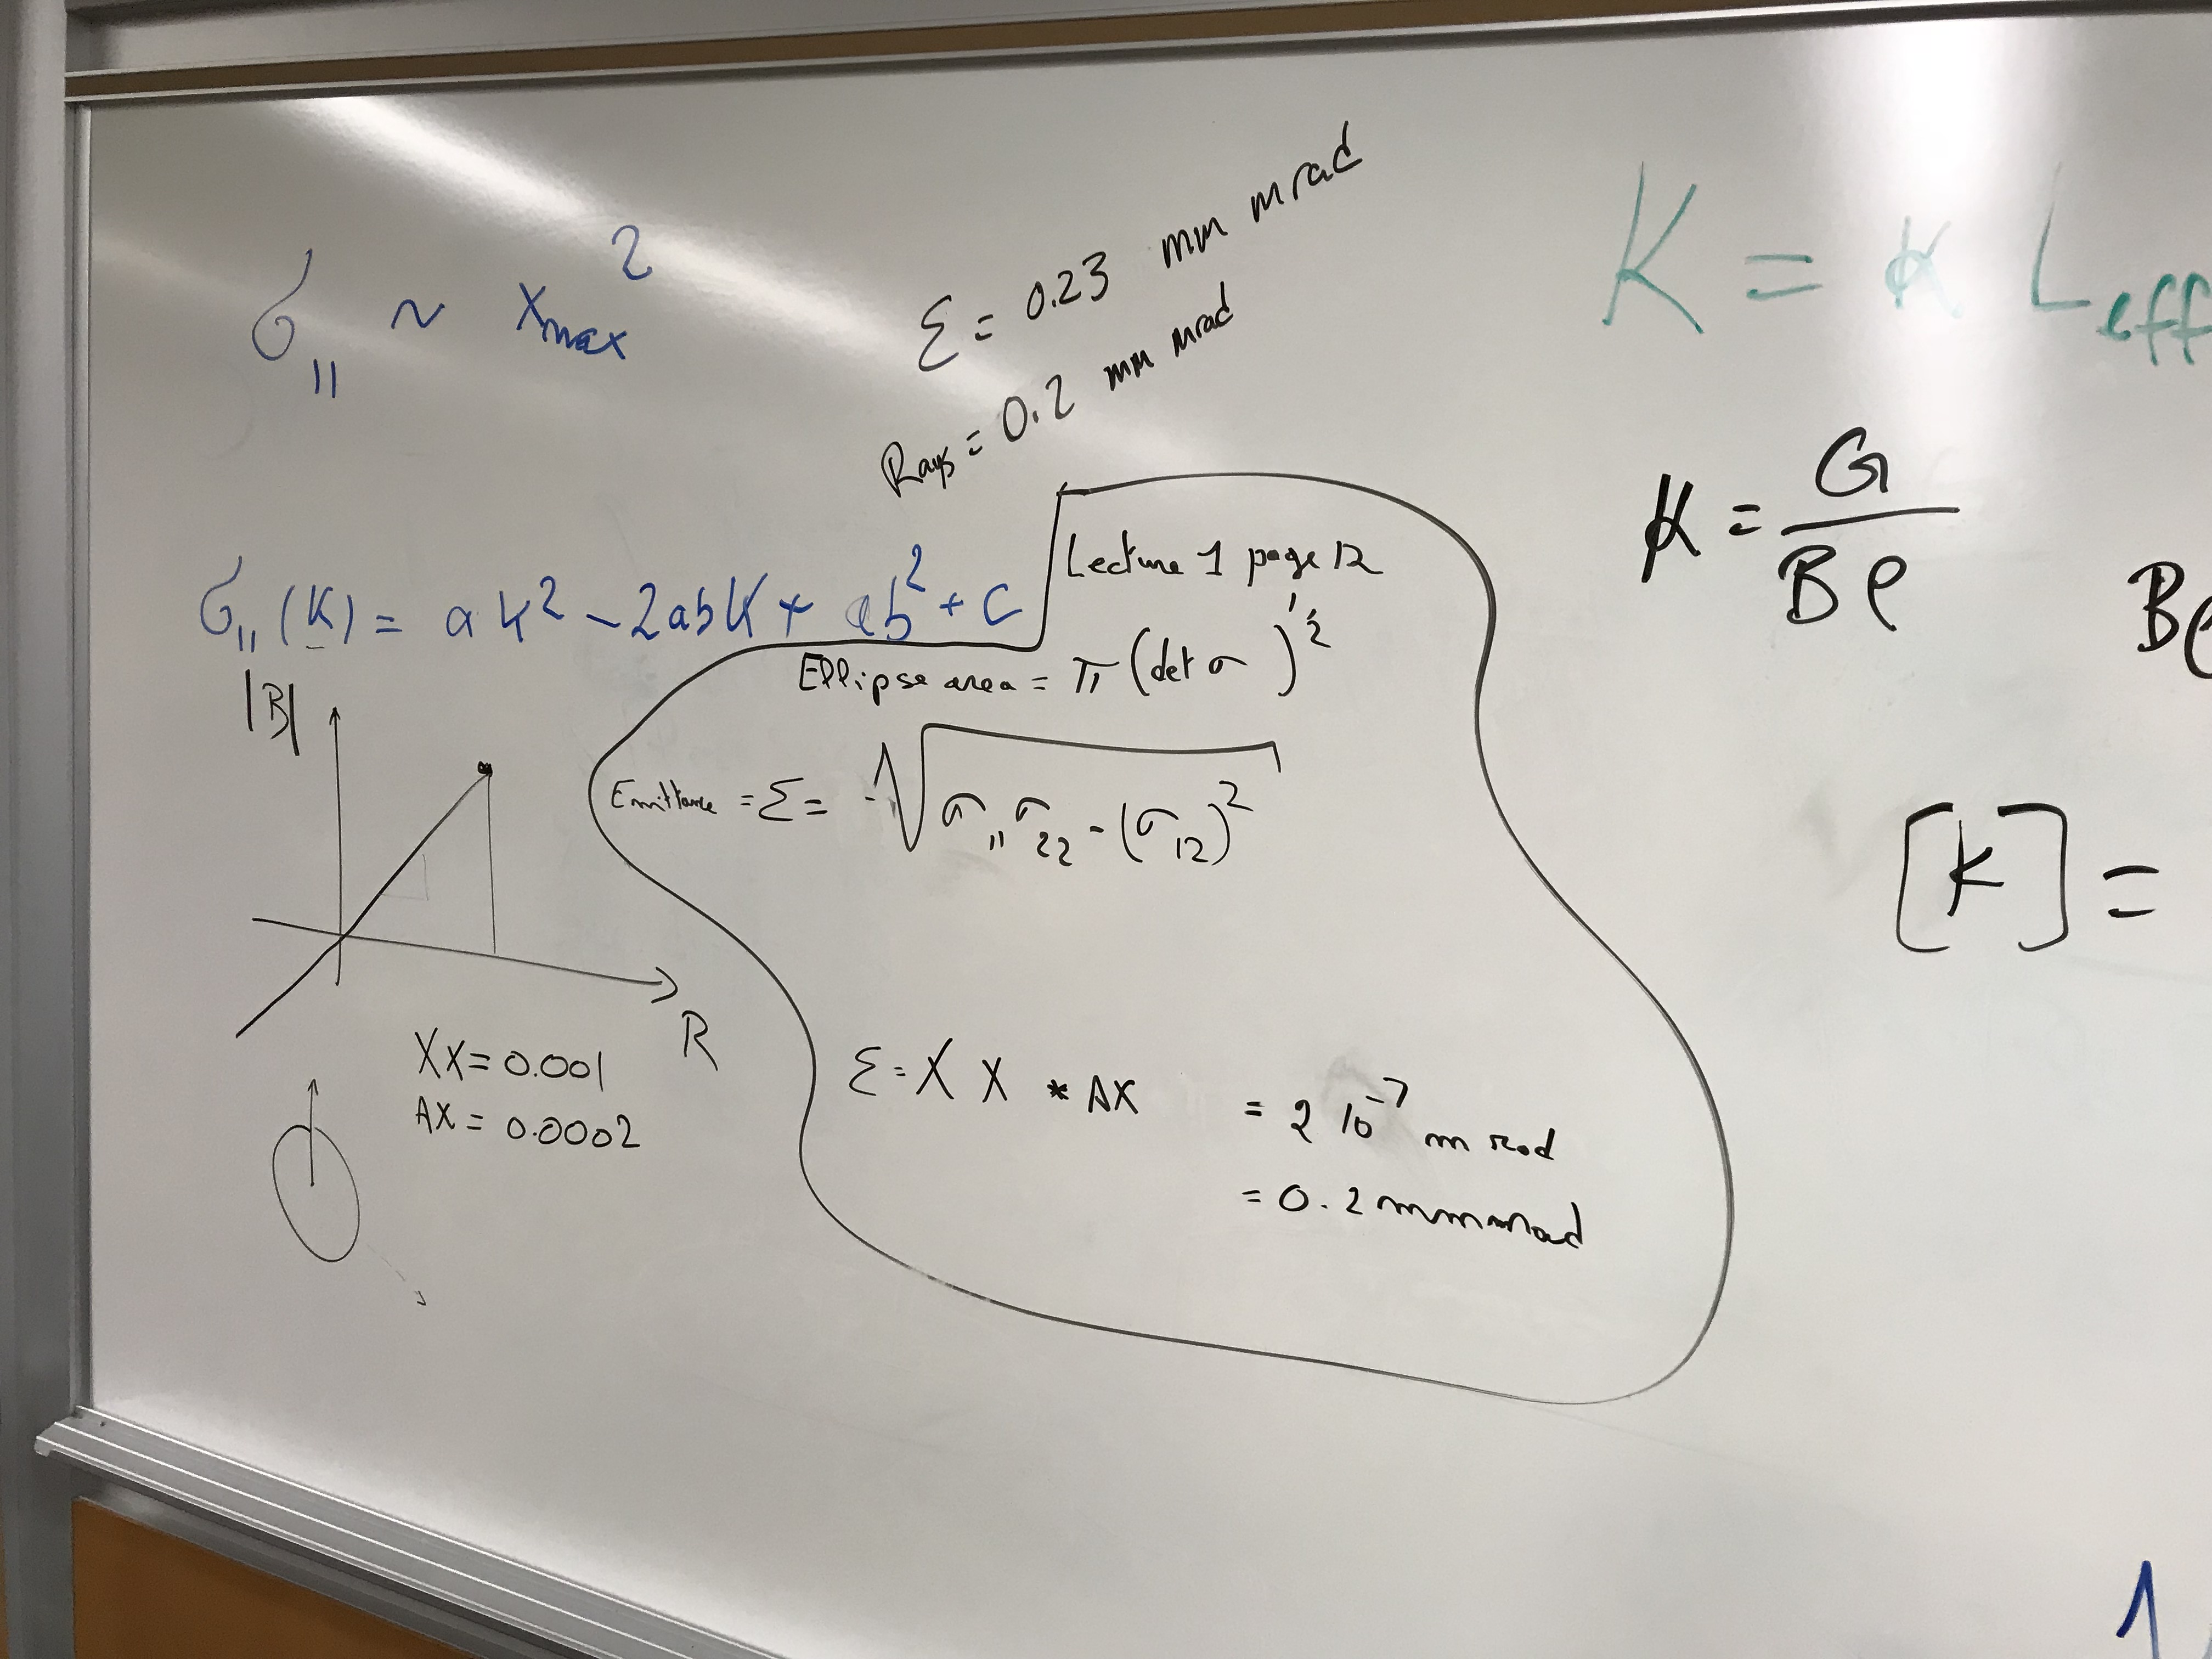 σ₁₁ ~ x_max²
ε = 0.23 mm mrad
Rays = 0.2 mm mrad
σ₁₁(K) = aK² - 2abK + ab² + c
Lecture 1 page 12
Ellipse area = π (det σ)^½
Emittance = ε = √(σ₁₁σ₂₂ - (σ₁₂)²)
|B|
R
XX = 0.001
AX = 0.0002
ε = XX * AX = 2 10⁻⁷ m rad
= 0.2 mm mrad
K = k L_eff
k = G / Bρ
Bρ
[k] =
1